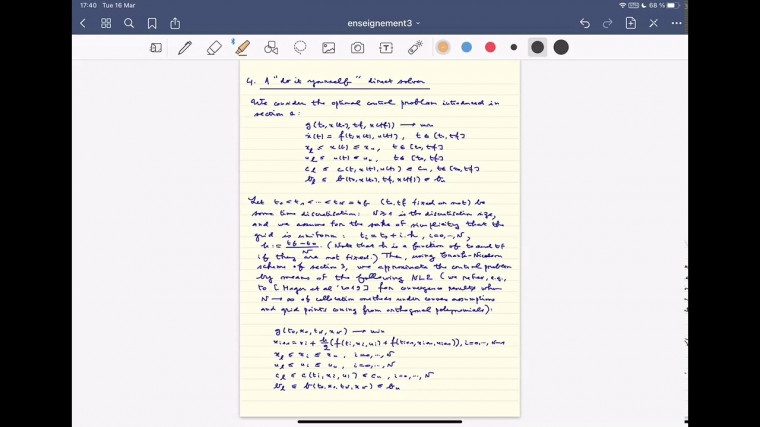 17:40 Tue 16 Mar
68 %
enseignement3
4. A "do it yourself" direct solver
We consider the optimal control problem introduced in
section 2:
g(t0, x(t0), tf, x(tf)) → min
ẋ(t) = f(t, x(t), u(t)), t ∈ [t0, tf]
xl ≤ x(t) ≤ xu, t ∈ [t0, tf]
ul ≤ u(t) ≤ uu, t ∈ [t0, tf]
cl ≤ c(t, x(t), u(t)) ≤ cu, t ∈ [t0, tf]
bl ≤ b(t0, x(t0), tf, x(tf)) ≤ bu
Let t0 < t1 < ... < tN = tf (t0, tf fixed or not) be
some time discretisation: N ≥ 1 is the discretisation size,
and we assume for the sake of simplicity that the
grid is uniform: ti = t0 + i.h, i=0,...,N,
h := tf - t0 / N. (Note that h is a function of t0 and tf
if they are not fixed.) Then, using Crank-Nicolson
scheme of section 3, we approximate the control problem
by means of the following NLP (we refer, e.g.,
to [Hager et al 2019] for convergence results when
N → ∞ of collocation methods under convex assumptions
and grid points coming from orthogonal polynomials):
g(t0, x0, tN, xN) → min
xi+1 = xi + h/2 (f(ti, xi, ui) + f(ti+1, xi+1, ui+1)), i=0,...,N-1
xl ≤ xi ≤ xu, i=0,...,N
ul ≤ ui ≤ uu, i=0,...,N
cl ≤ c(ti, xi, ui) ≤ cu, i=0,...,N
bl ≤ b(t0, x0, tN, xN) ≤ bu